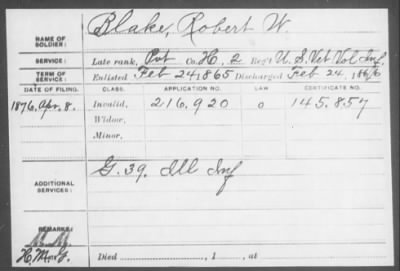 NAME OF SOLDIER: Blake, Robert W.
SERVICE: Late rank, Pvt Co. H, 2 Reg't U. S. Vet Vol Inf,
TERM OF SERVICE: Enlisted Feb 24, 1865 Discharged Feb 24, 1866
DATE OF FILING. CLASS. APPLICATION NO. LAW CERTIFICATE NO.
1876, Apr. 8. Invalid, 216,920 o 145.857
Widow,
Minor,
ADDITIONAL SERVICES: G. 39. Ill Inf
REMARKS:
Died , 1 , at